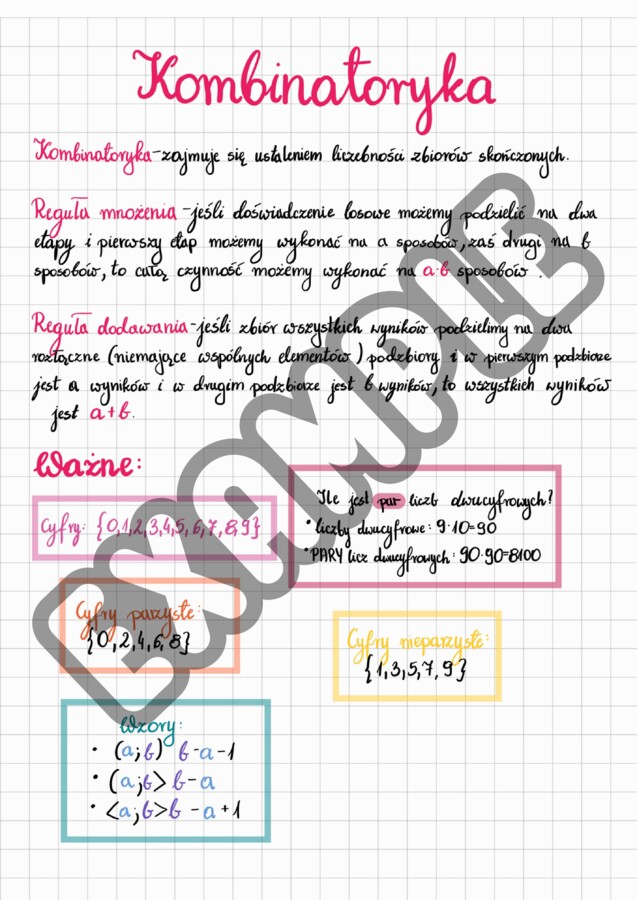 Kombinatoryka
Kombinatoryka-zajmuje się ustaleniem liczebności zbiorów skończonych.
Reguła mnożenia-jeśli doświadczenie losowe możemy podzielić na dwa
etapy i pierwszy etap możemy wykonać na a sposobów, zaś drugi na b
sposobów, to całą czynność możemy wykonać na a·b sposobów.
Reguła dodawania-jeśli zbiór wszystkich wyników podzielimy na dwa
rozłączne (niemające wspólnych elementów) podzbiory i w pierwszym podzbiorze
jest a wyników i w drugim podzbiorze jest b wyników, to wszystkich wyników
jest a+b.
Ważne:
Cyfry: {0,1,2,3,4,5,6,7,8,9}
Ile jest par liczb dwucyfrowych?
• liczby dwucyfrowe: 9·10=90
• PARY licz dwucyfrowych: 90·90=8100
Cyfry parzyste:
{0,2,4,6,8}
Cyfry nieparzyste:
{1,3,5,7,9}
Wzory:
• (a;b) b-a-1
• (a;b> b-a
• <a;b> b-a+1
EXAMPLE